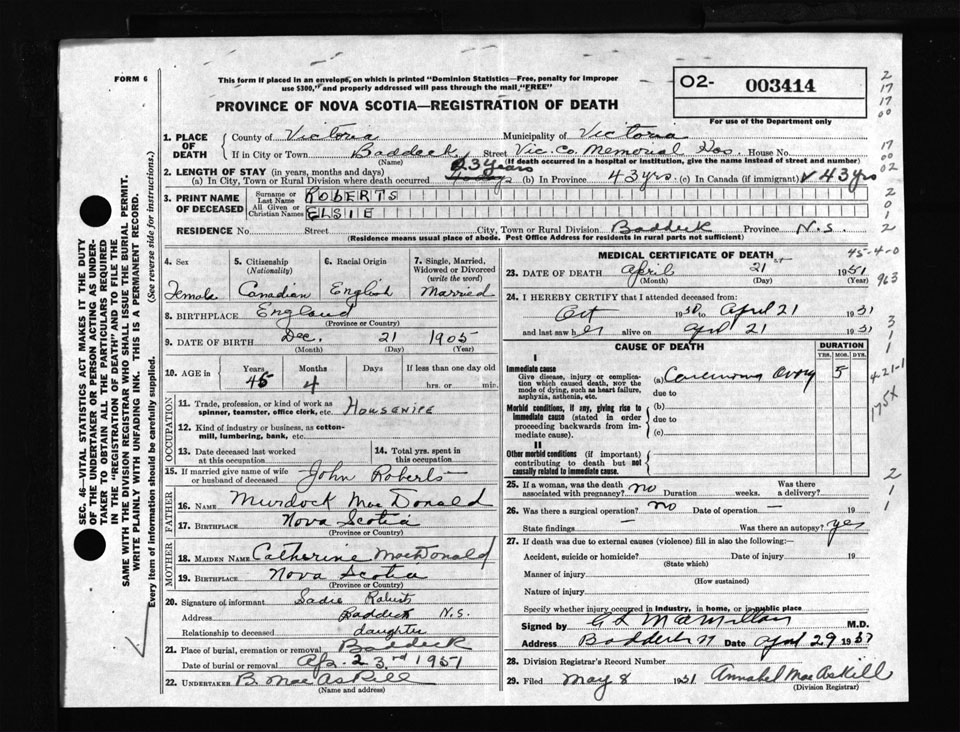 FORM 6
This form if placed in an envelope, on which is printed "Dominion Statistics—Free, penalty for improper
use $300," and properly addressed will pass through the mail "FREE"
PROVINCE OF NOVA SCOTIA—REGISTRATION OF DEATH
O2- 003414
For use of the Department only
1. PLACE OF DEATH
County of Victoria Municipality of Victoria
If in City or Town Baddeck Street Vic. Co. Memorial Hos. House No.
(Name) (If death occurred in a hospital or institution, give the name instead of street and number)
2. LENGTH OF STAY (in years, months and days) 23 years
(a) In City, Town or Rural Division where death occurred (b) In Province 43 yrs. (c) In Canada (if immigrant) 43 yrs
3. PRINT NAME OF DECEASED
Surname or Last Name ROBERTS
All Given or Christian Names ELSIE
RESIDENCE No. Street City, Town or Rural Division Baddeck Province N.S.
(Residence means usual place of abode. Post Office Address for residents in rural parts not sufficient)
4. Sex Female
5. Citizenship (Nationality) Canadian
6. Racial Origin English
7. Single, Married, Widowed or Divorced (write the word) Married
8. BIRTHPLACE England
(Province or Country)
9. DATE OF BIRTH Dec. 21 1905
(Month) (Day) (Year)
10. AGE in Years Months Days If less than one day old
45 4 hrs. or min.
OCCUPATION
11. Trade, profession, or kind of work as
spinner, teamster, office clerk, etc. HOUSEWIFE
12. Kind of industry or business, as cotton-
mill, lumbering, bank, etc.
13. Date deceased last worked
at this occupation
14. Total yrs. spent in
this occupation
15. If married give name of wife
or husband of deceased John Roberts
FATHER
16. NAME Murdock MacDonald
17. BIRTHPLACE Nova Scotia
(Province or Country)
MOTHER
18. MAIDEN NAME Catherine MacDonald
19. BIRTHPLACE Nova Scotia
(Province or Country)
20. Signature of informant Sadie Roberts
Address Baddeck N.S.
Relationship to deceased daughter
21. Place of burial, cremation or removal Baddeck
Date of burial or removal Apr. 23rd 1951
22. UNDERTAKER B. MacAskill
(Name and address)
MEDICAL CERTIFICATE OF DEATH
23. DATE OF DEATH April 21st 1951
(Month) (Day) (Year)
24. I HEREBY CERTIFY that I attended deceased from:
Oct 1950 to April 21 1951
and last saw her alive on April 21 1951
CAUSE OF DEATH
DURATION
YRS. MOS. DYS.
I
Immediate cause
Give disease, injury or complica-
tion which caused death, not the
mode of dying, such as heart failure,
asphyxia, asthenia, etc.
(a) Carcinoma Ovary 5
due to
Morbid conditions, if any, giving rise to
immediate cause (stated in order
proceeding backwards from im-
mediate cause).
(b)
due to
(c)
II
Other morbid conditions (if important)
contributing to death but not
causally related to immediate cause.
25. If a woman, was the death
associated with pregnancy? no Duration weeks. Was there
a delivery?
26. Was there a surgical operation? no Date of operation — 19
State findings — Was there an autopsy? yes
27. If death was due to external causes (violence) fill in also the following:—
Accident, suicide or homicide? Date of injury 19
(State which)
Manner of injury
(How sustained)
Nature of injury
Specify whether injury occurred in industry, in home, or in public place
Signed by G L MacMillan M.D.
Address Baddeck Date April 29 1951
28. Division Registrar's Record Number
29. Filed May 8 1951 Annabel MacAskill
(Division Registrar)
SEC. 46—VITAL STATISTICS ACT MAKES IT THE DUTY
OF THE UNDERTAKER OR PERSON ACTING AS UNDER-
TAKER TO OBTAIN ALL THE PARTICULARS REQUIRED
IN THE "REGISTRATION OF DEATH" AND TO FILE THE
SAME WITH THE DIVISION REGISTRAR WHO SHALL ISSUE THE BURIAL PERMIT.
WRITE PLAINLY WITH UNFADING INK. THIS IS A PERMANENT RECORD.
Every item of information should be carefully supplied. (See reverse side for instructions.)
2
17
17
00
17
00
02
2
0
1
2
45-4-0
963
3
1
1
4-21-1
175X
2
1
1